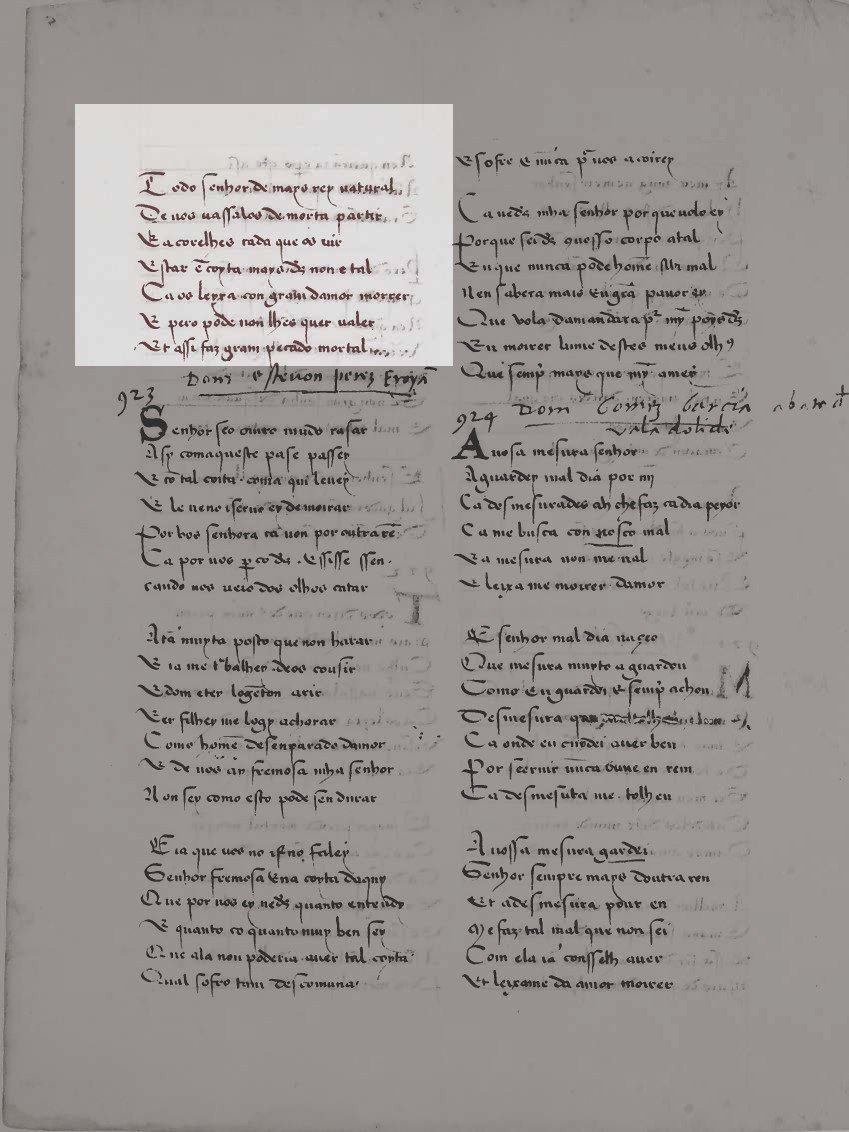 Todo senhor, de mays rey natural
De uos uassalos de morta partir
E acorelhes cada que os uir
Estar ẽ coyta mays d̃s non e tal
Ca os leyxa con gram damor morrer
E pero pode non lhes quer ualer
Et assi faz gram pecado mortal
Dom Esteuon perez Froyã
923
Senhor seo outro mudo rasar
Assy comaqueste pase passey
E cõ tal coita coma qui leuey
E le ueno
Por uos senhora ca non por outra rẽ
Ca por uos
cando uos ueio dos olhos catar
Atã muyta posto que non harar
E ia me
E dom
Ver filhey me logy achorar
Como homẽ desenparado damor
E de uos ay fremosa mha senhor
Non sey como esto pode sen durar
E ia que uos no faley
Senhor fremosa ena coyta daquy
Que por uos ey ued̃s quanto entendy
E quanto co quanto muy ben sey
Que ala non poderia auer tal coyta
Qual sofro tam descomuna
E sofre e nũca pr uos acoirey
Ca ued̃s mha senhor por que uolo ey
Porque feid̃s uosso corpo atal
Eu que nunca pode home saber mal
Nen sabera mais eu grã pauor ey
Que uola damandara pr my poys d̃s
Eu moirer lume destes meus olhos
Que semp̃ mays que my amey
924 Dom Gomez Garcia abade d
ualadolide
A uosa mesura senhor
Aguardey mal dia por mi
Ca desmesurades ah che faz cadia peyor
Ca me busca con uosco mal
E a mesura non me ual
E leixa me moirer damor
E senhor mal dia naçeo
Que mesura muyto aguardou
Como eu guardei e semp̃ achou
Desmesura
Ca onde eu cuidei auer ben
Por seeruir nũca ouue en rem
Ca desmesura me tolheu
A uossa mesura gardei
Senhor sempre mays doutra ren
Et a desmesura pour en
Me faz tal mal que non sei
Com ela ia consselh auer
Et leixame da amor moirer